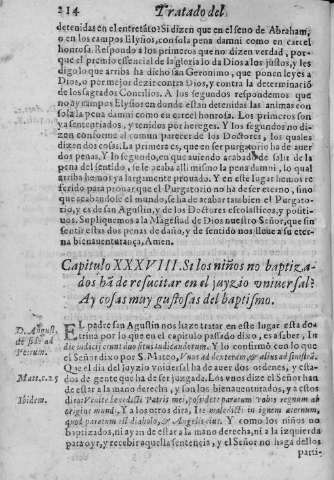 214 Tratado del
detenidas en el entretãto? Si dizen que en el seno de Abraham,
o en los campos Elysios, con sola pena damni como en carcel
honrosa. Respondo a los primeros que no dizen verdad, por-
que el premio essencial de la gloria lo da Dios a los justos, y les
digo lo que arriba ha dicho san Geronimo, que ponen leyes a
Dios, o por mejor dezir contra Dios, y contra la determinaciõ
de los sagrados Concilios. A los segundos respondemos que
no ay campos Elysios en donde estan detenidas las animas con
sola la pena damni como en carcel honrosa. Los primeros son
ya sentenciados, y tenidos por hereges. Y los segundos no di-
zen conforme al comun parecer de los Doctores, los quales
dizen dos cosas. La primera es, que en ser purgatorio ha de auer
dos penas. Y lo segundo, en que auiendo acabado de salir de la
pena del sentido, se le acaba assi mismo la pena damni, lo qual
arriba hemos ya largamente prouado. Y en este lugar hemos re-
ferido para prouar que el Purgatorio no ha de ser eterno, sino
que se ha de acabar, porque acabandose el mundo, se ha de
acabar tambien el Purgato-
rio, y es de san Agustin, y de los Doctores escolasticos, y positi-
uos. Supliquemos a la Magestad de Dios nuestro Señor, que sin
sentir estas dos penas de daño, y de sentido nos lleue a su eter-
na bienauenturança, Amen.
Capitulo XXXVIII. Si los niños no baptiza-
dos hã de resucitar en el juyzio vniuersal?
Ay cosas muy gustosas del baptismo.
D. August.
de fide ad
Petrum.
EL padre san Agustin nos haze tratar en este lugar esta do-
trina por lo que en el capitulo passado dixo, es a saber, In
die iudicij conuenti duo sunt iudicandorum. Y lo confirmò con lo que
el Señor dixo por S. Mateo, Vnus ad dexteram, & alius ad sinistrã.
Matt. c. 25
Que el dia del juyzio vniuersal ha de auer dos ordenes, y esta-
dos de gente que ha de ser juzgada. Los vnos dize el Señor han
de estar a la mano derecha y son los bienauenturados, y a estos
Ibidem.
dira: Venite benedicti Patris mei, possidete paratum vobis regnum ab
origine mundi, Y a los otros dira, Ite maledicti in ignem æternum,
quod paratum est diabolo, & Angelis eius. Y como los niños no
baptizados, ni ayan de estar a la mano derecha, ni a la izquierda
para oyr, y recebir aquella sentencia, y el Señor no haga de llos
parti-